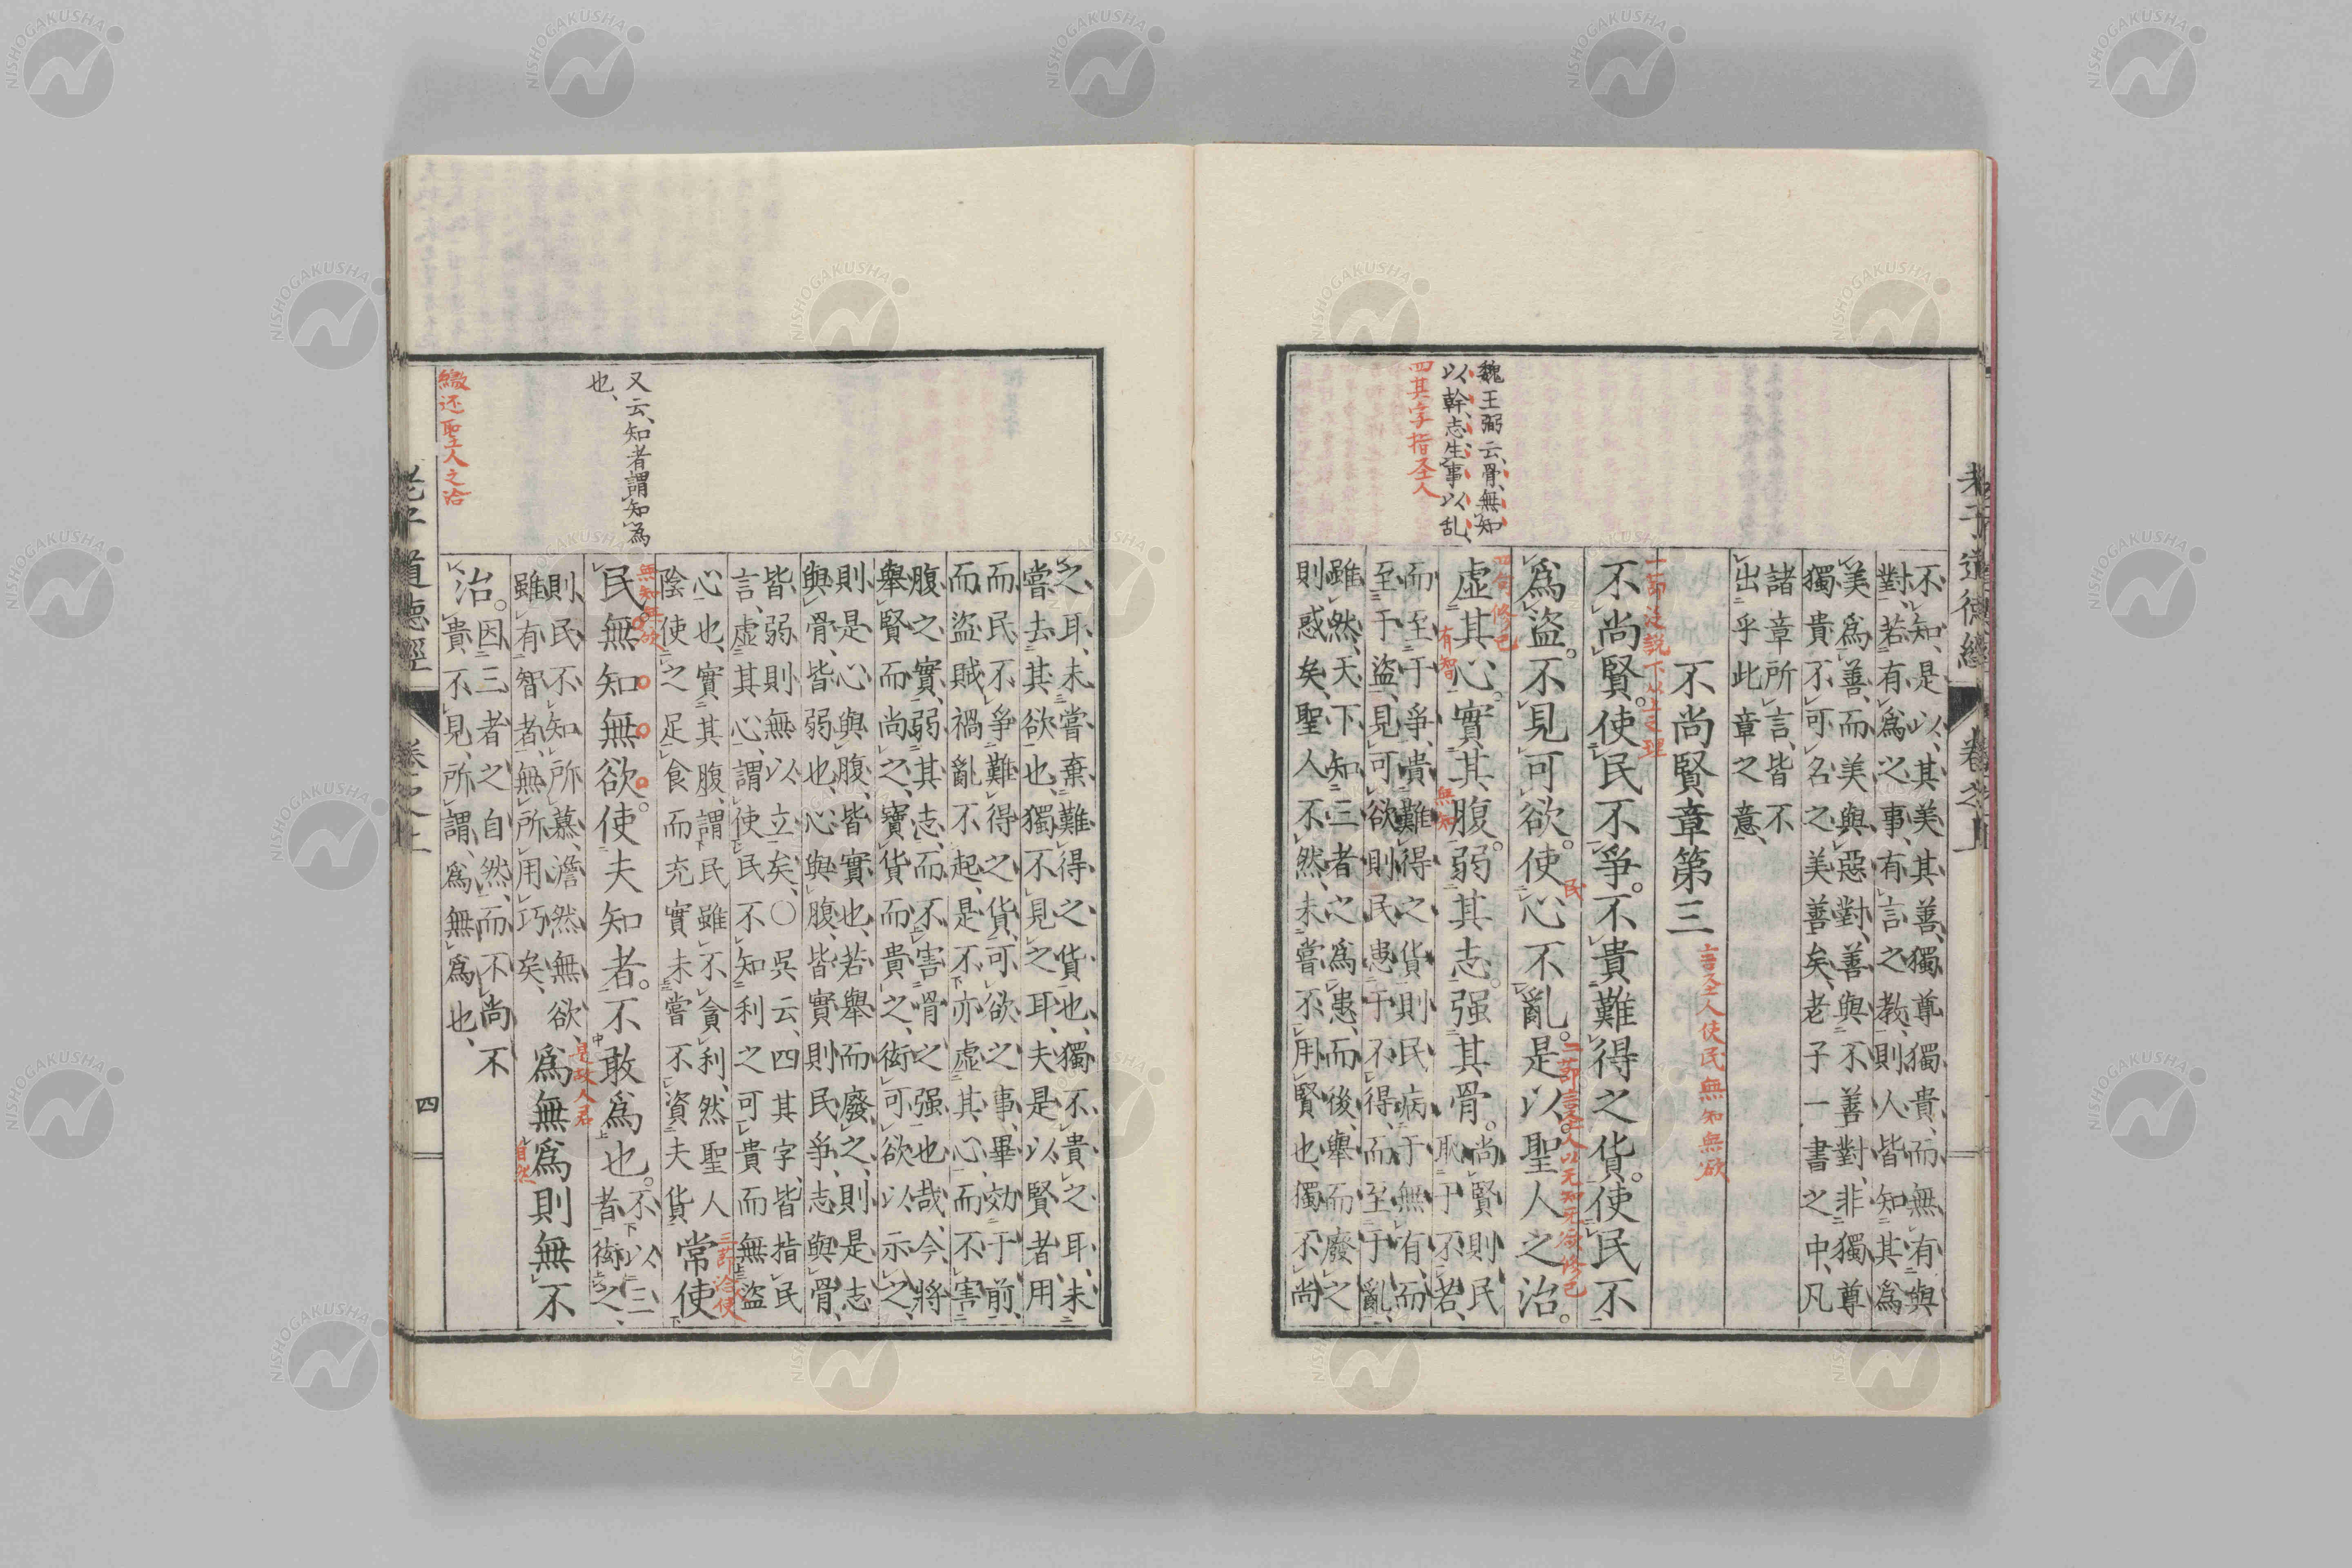 老子道德經 卷之上
魏王弼云、骨無知
以幹、志生事以乱、
四其字指圣人
不知、是以其美其善、獨尊獨貴、而無有與
對、若有爲之事、有言之教、則人皆知其爲
美爲善、而美與惡對、善與不善對、非獨尊
獨貴不可名之美善矣、老子一書之中、凡
諸章所言、皆不
出乎此章之意、
不尚賢章第三
言圣人使民無知無欲
一節泛説下以上之理
不尚賢。使民不爭。不貴難得之貨。使民不
民
爲盜。不見可欲。使心不亂。是以聖人之治。
二節言圣人以无知无欲修己
四句修己
有智
無知
虚其心。實其腹。弱其志。强其骨。
尚賢則民
恥于不若、
而至于爭、貴難得之貨、則民病于無有、而
至于盜、見可欲則民患于不得、而至于亂、
雖然、天下知三者之爲患、而後舉而廢之
則惑矣、聖人不然、未嘗不用賢也、獨不尚
之耳、未嘗棄難得之貨也、獨不貴之耳、未
嘗去其欲也、獨不見之耳、夫是以賢者用
而民不爭、難得之貨、可欲之事、畢効于前、
而盜賊禍亂不起、是不亦虚其心、而不害
腹之實、弱其志、而不害骨之强也哉、今將
舉賢而尚之、寶貨而貴之、衒可欲以示之、
則是心與腹皆實也、若舉而廢之、則是志
與骨皆弱也、心與腹皆實則民爭、志與骨
皆弱則無以立矣、〇吳云、四其字、皆指民
言、虚其心、謂使民不知利之可貴而無盜
心也、實其腹、謂民雖不貪利、然聖人
陰使之足食而充實未嘗不資夫貨、
三節治人使
常使
又云、知者謂知為
也、
無知無欲
民無知無欲。使夫知者。不敢爲也。
不以三
者衒之、
則民不知所慕、澹然無欲、
雖有智者、無所用巧矣、
是故人君
自然
爲無爲則無不
治。
因三者之自然、而不尚不
貴、不見、所謂爲無爲也、
繳还聖人之治
老子道德經 卷之上 四